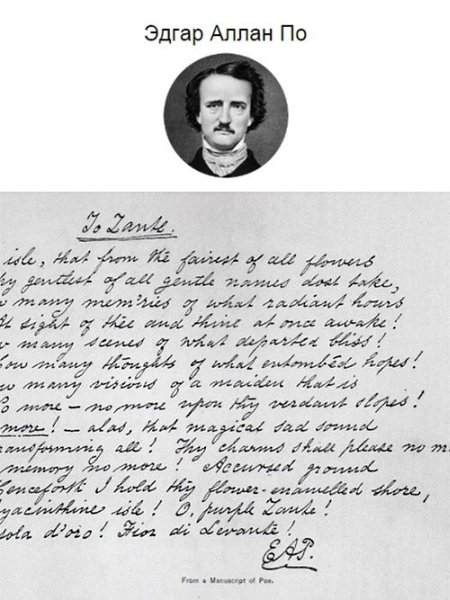 Эдгар Аллан По
To Zante.
isle, that from the fairest of all flowers
hy gentlest of all gentle names dost take,
w many mem'ries of what radiant hours
At sight of thee and thine at once awake!
w many scenes of what departed bliss!
How many thoughts of what entombéd hopes!
ow many visions of a maiden that is
No more — no more upon thy verdant slopes!
more! — alas, that magical sad sound
ransforming all! Thy charms shall please no m
memory no more! Accursed ground
Henceforth I hold thy flower-enamelled shore,
yacinthine isle! O, purple Zante!
sola d'oro! Fior di Levante!
EAP.
From a Manuscript of Poe.